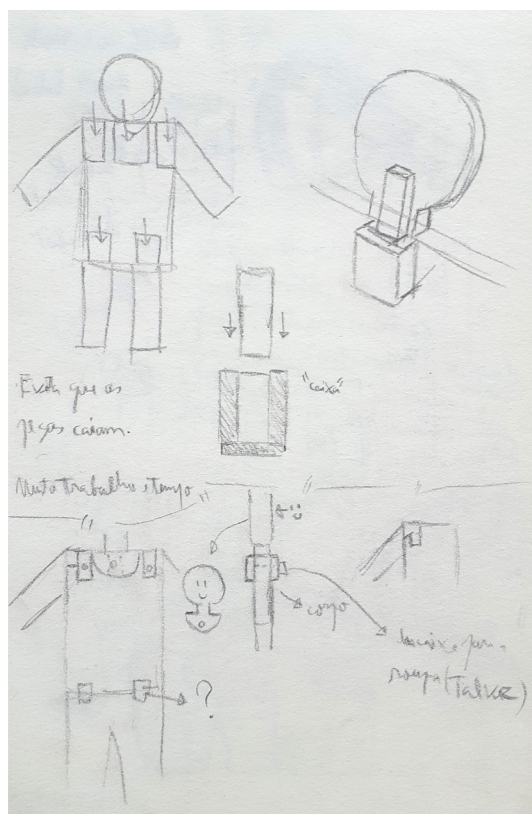 Evita que as
peças caiam.
"caixa"
Muito trabalho e tempo
corpo
Encaixe para
roupa (Talvez)
?